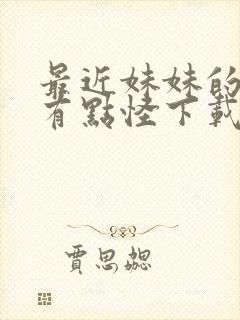 最近妹妹的
有點怪下載
賈思勰